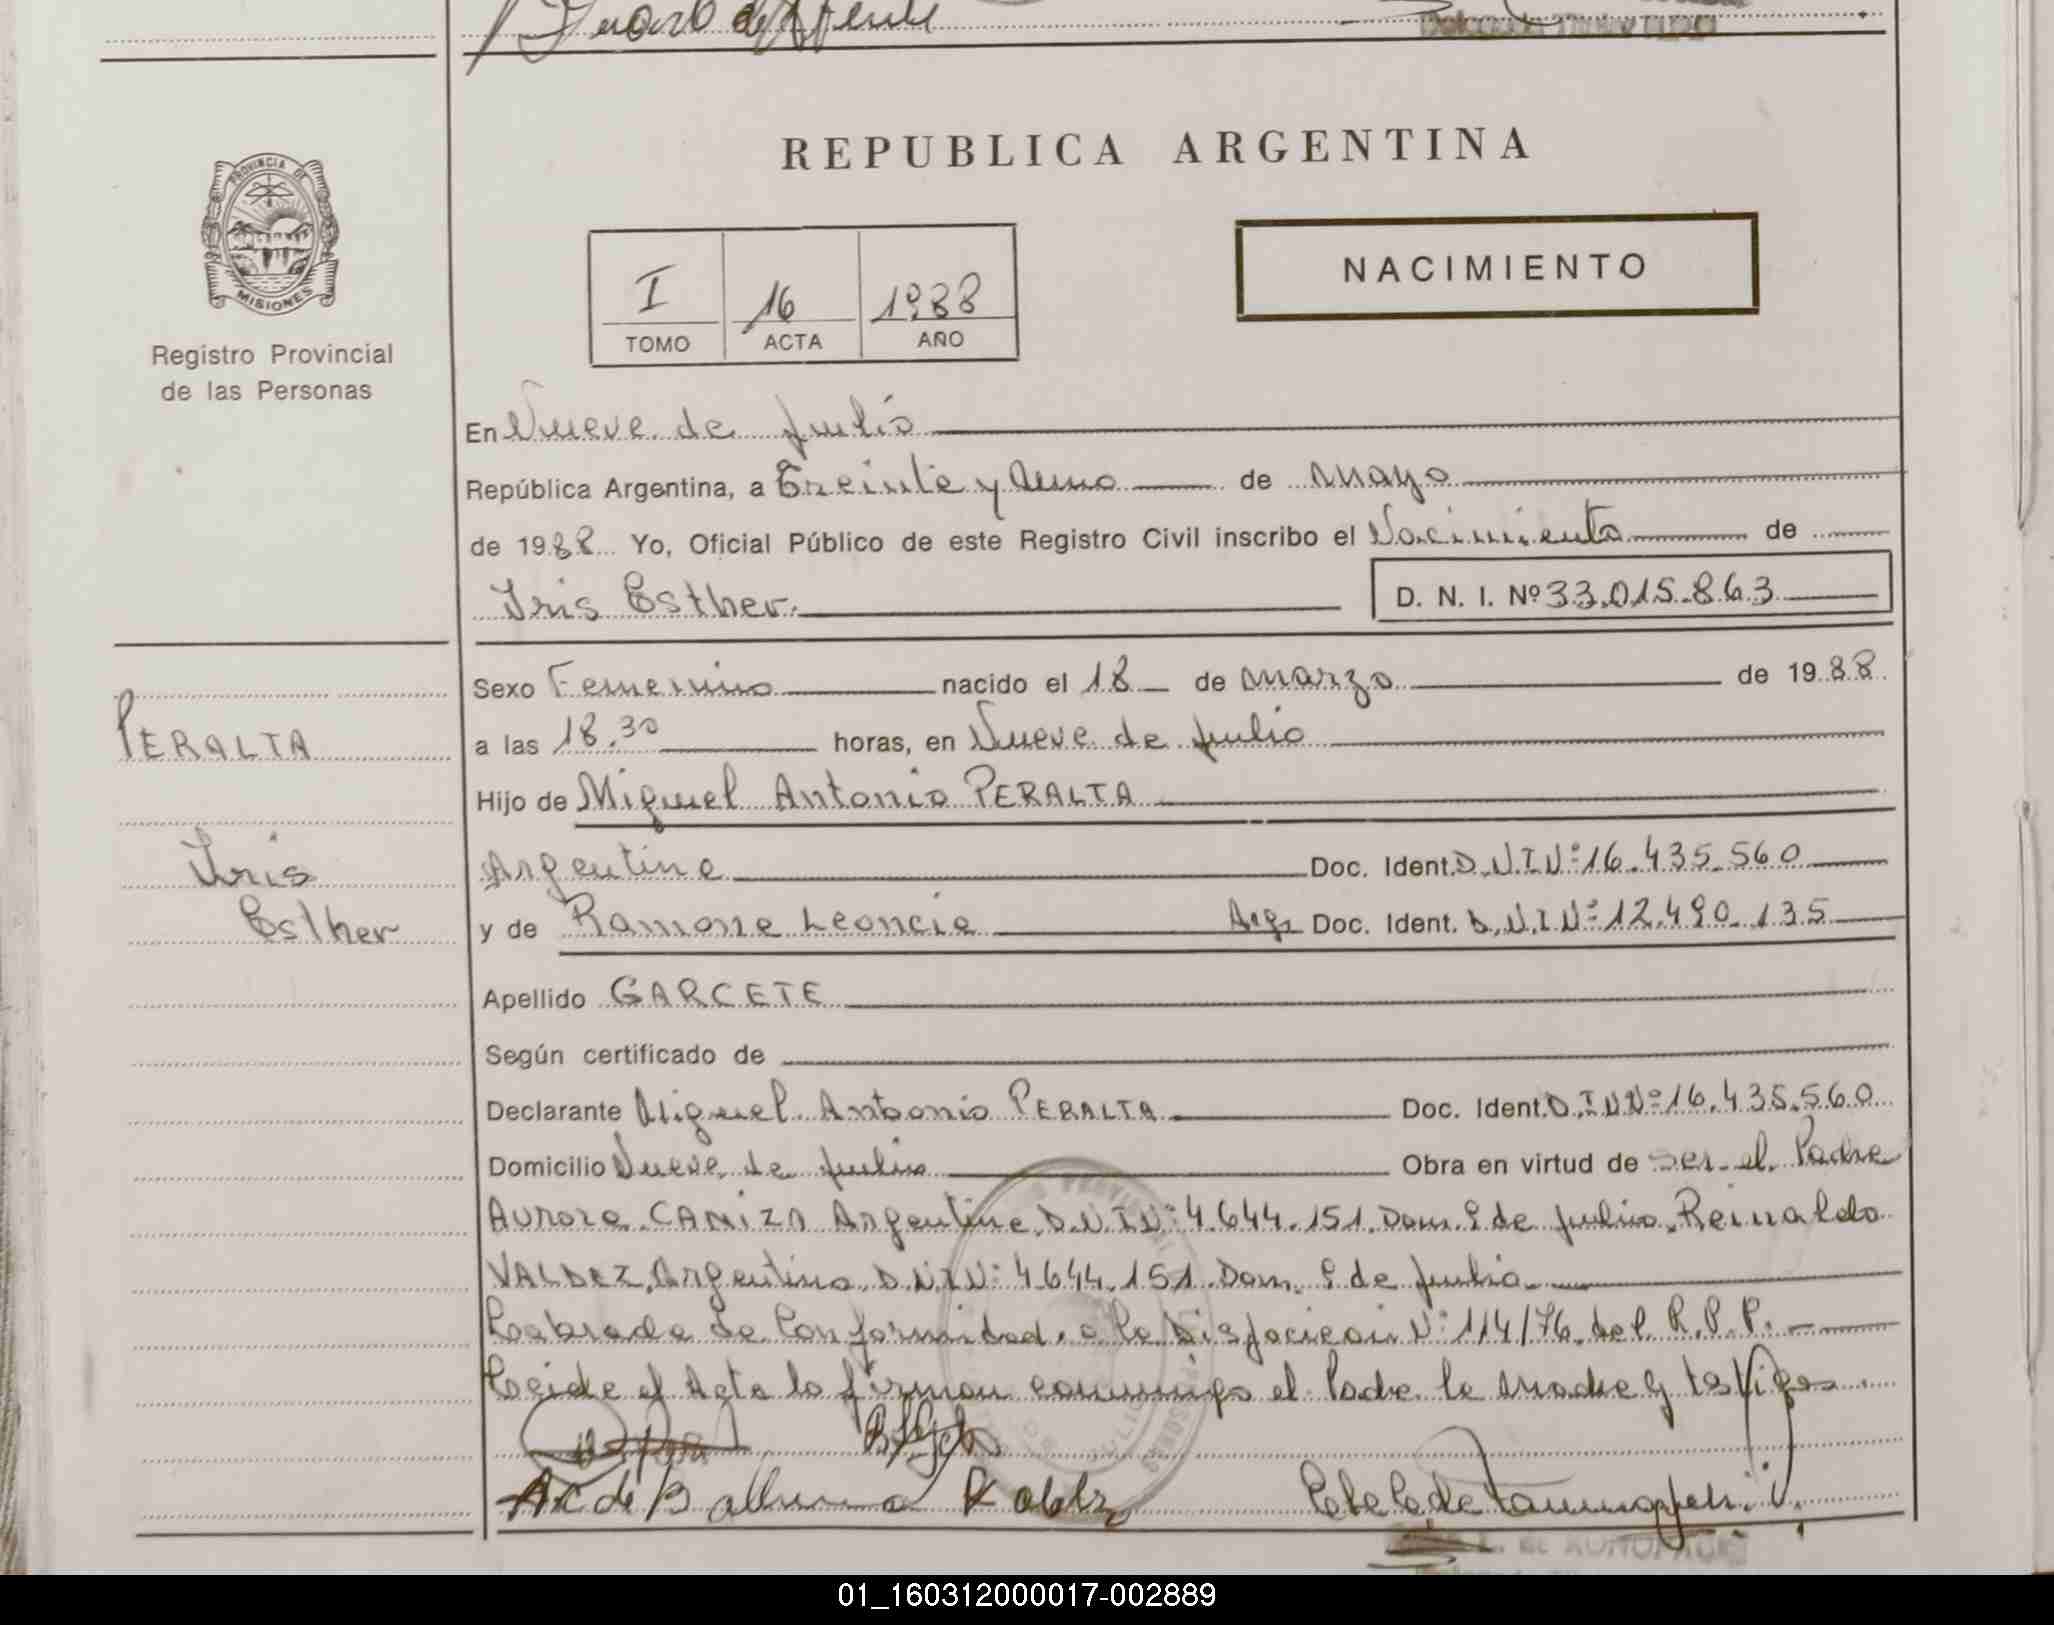 PROVINCIA DE
MISIONES
Registro Provincial
de las Personas
REPUBLICA ARGENTINA
I 16 1988
TOMO ACTA AÑO
NACIMIENTO
En Nueve de Julio
República Argentina, a Treinta y Uno de Mayo
de 1988 Yo, Oficial Público de este Registro Civil inscribo el Nacimiento de
Iris Esther.
D. N. I. Nº 33.015.863
PERALTA
Iris
Esther
Sexo Femenino nacido el 18 de Marzo de 1988.
a las 18.30 horas, en Nueve de Julio
Hijo de Miguel Antonio PERALTA
Argentina Doc. Ident. D.N.I Nº 16.435.560
y de Ramona Leoncia Arg. Doc. Ident. D.N.I Nº 12.490.135
Apellido GARCETE
Según certificado de
Declarante Miguel Antonio PERALTA Doc. Ident. D.I N Nº 16.435.560
Domicilio Nueve de Julio Obra en virtud de ser el Padre
Aurora CANIZA Argentina D.N.I Nº 4.644.151. Dom. 9 de Julio. Reinaldo
VALDEZ, Argentino D.N.I Nº 4644.151. Dom. 9 de Julio
Labrada de Conformidad a la Nº 114/76 del R.P.P.
el Acta la firman conmigo el Padre la Madre y testigos.
01_160312000017-002889